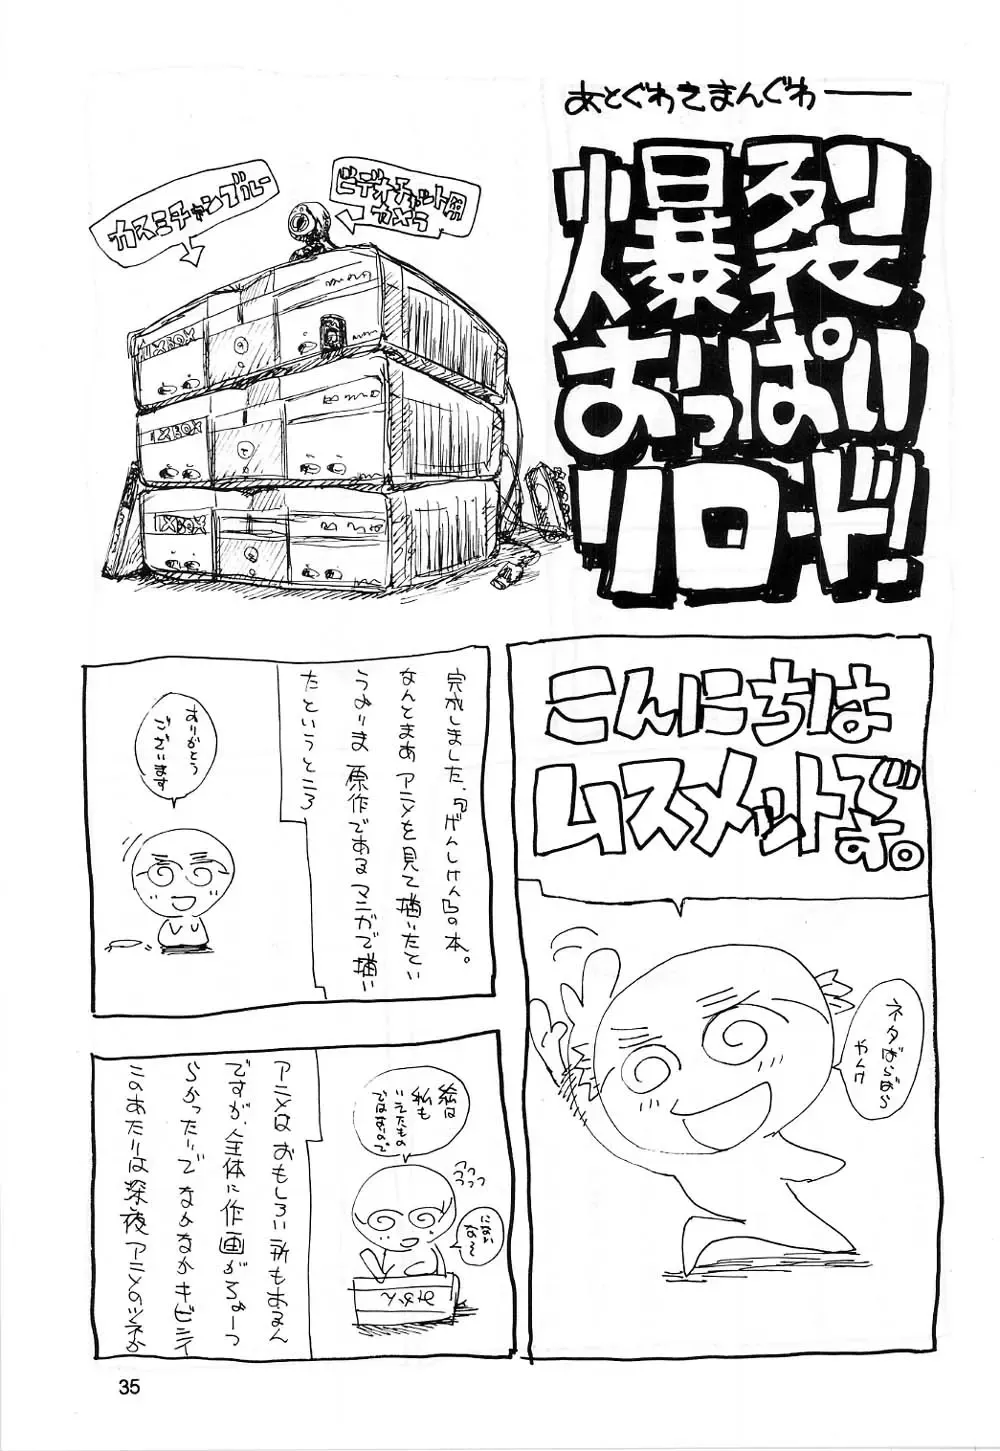 あとぐわきまんぐわ━━
爆裂
おっぱい
リロード!
ビデオチャット用
カメラ
カスミチャンブルー
XBOX
XBOX
XBOX
こんにちは
ムスメットです。
ネタばらばら
やんけ
完成しました、『げんしけん』の本。
なんとまあ アニメを見て描いたとい
うよりま 原作であるマンガで描い
たというところ
ありがとう
ございます
絵は
私も
いえたもの
ではないので
にない
な〜
みかん
アニメは おもしろい所もあるん
ですが、全体に作画がちょーっ
らかったりで なかなかキビシイ
このあたりは深夜アニメのツネか
35